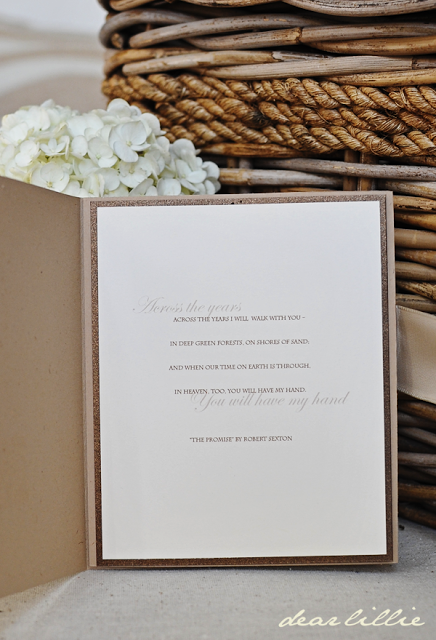 Across the years
ACROSS THE YEARS I WILL WALK WITH YOU –
IN DEEP GREEN FORESTS, ON SHORES OF SAND,
AND WHEN OUR TIME ON EARTH IS THROUGH,
IN HEAVEN, TOO, YOU WILL HAVE MY HAND.
You will have my hand
"THE PROMISE" BY ROBERT SEXTON
dear lillie